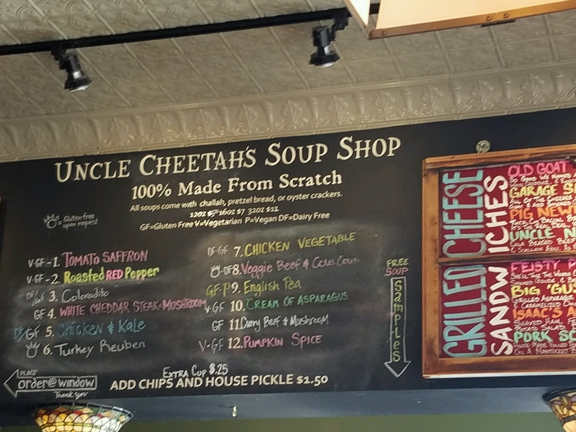 UNCLE CHEETAH'S SOUP SHOP
100% Made From Scratch
All soups come with challah, pretzel bread, or oyster crackers.
12oz $5 16oz $7 32oz $12
GF=Gluten Free V=Vegetarian P=Vegan DF=Dairy Free
Gluten free upon request
V-GF-1. TOMATO SAFFRON
V-GF-2. Roasted RED Pepper
3. Colorado
GF 4. WHITE CHEDDAR STEAK MUSHROOM
GF 5. Chicken & Kale
6. Turkey Reuben
DF-GF 7. CHICKEN VEGETABLE
DF 8. Veggie Beef & Cous Cous
GF-P 9. English Pea
V-GF 10. CREAM OF ASPARAGUS
GF 11. Curry Beef & Mushroom
V-GF 12. PUMPKIN SPICE
FREE SOUP Samples
PLACE order@window
Thank you
EXTRA CUP $.25
ADD CHIPS AND HOUSE PICKLE $1.50
GRILLED CHEESE
SANDWICHES
OLD GOAT
GARAGE S
PIG NEW
UNCLE N
FEISTY P
BIG
ISAAC'S A
PORK SC